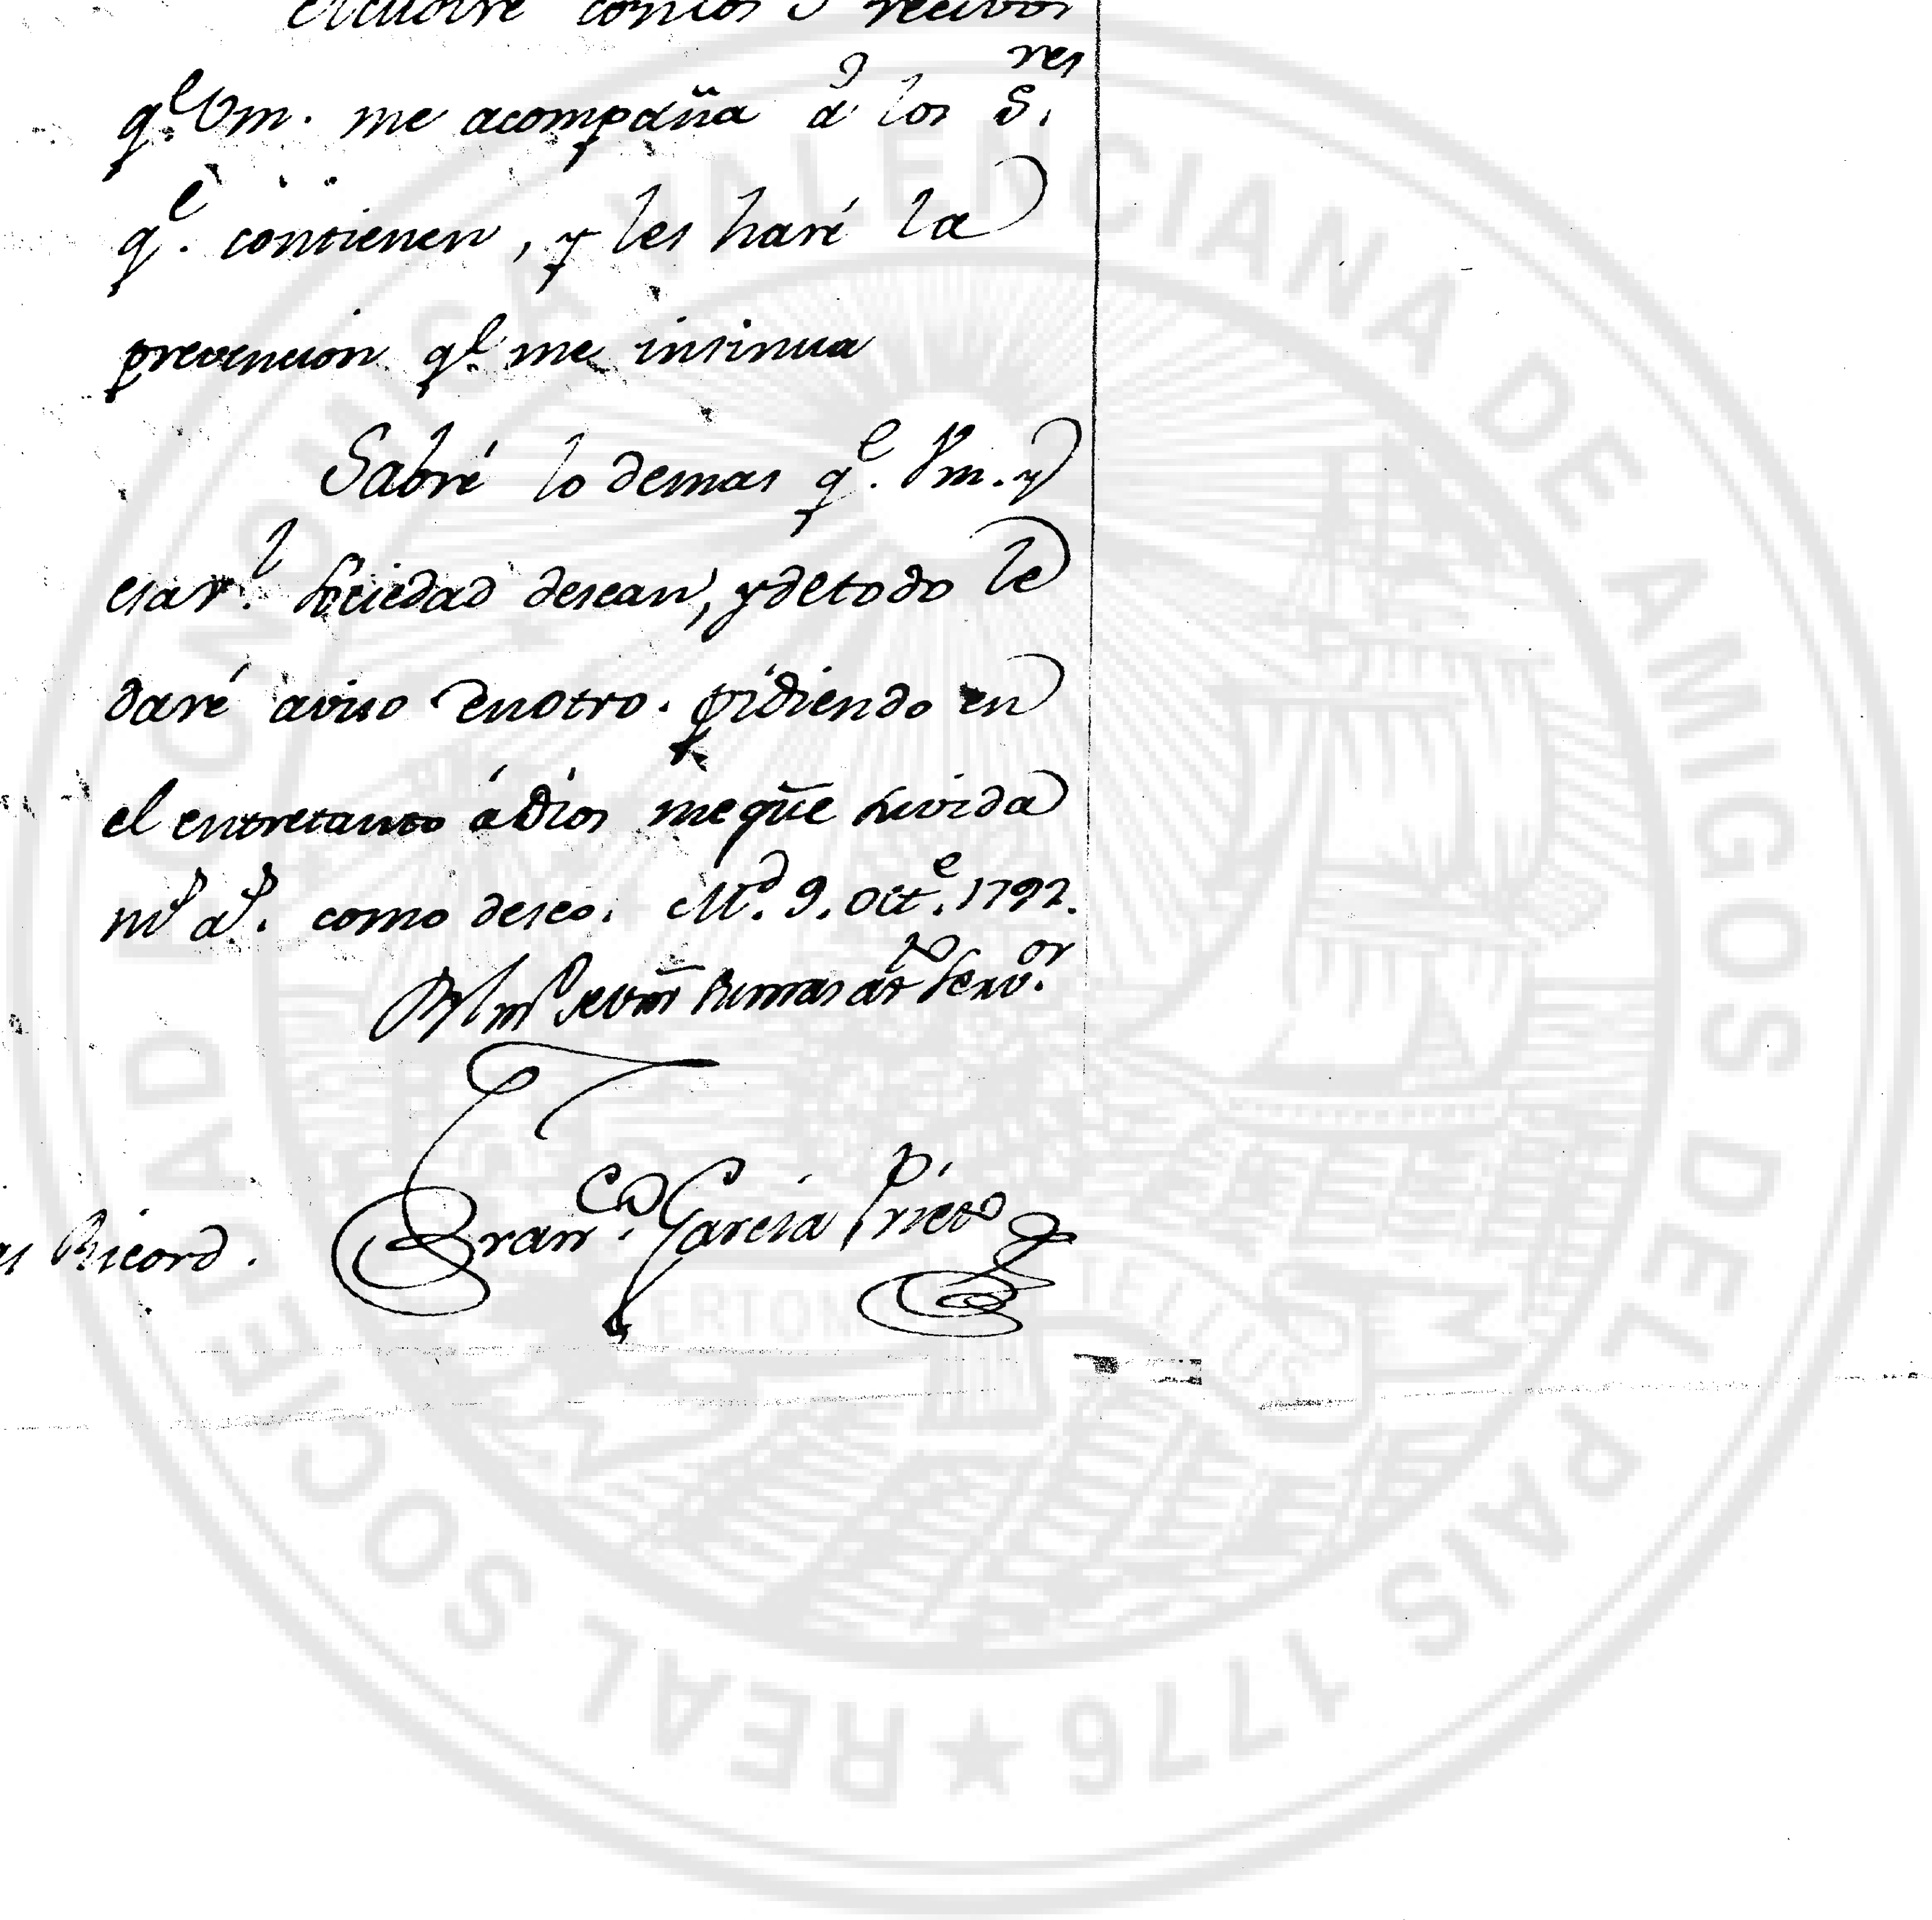 con los 3 recivos
q.e Vm. me acompaña á los S.res
q.e contienen, y les haré la
prevencion q.e me insinua
Sabré lo demas q.e Vm. y
esa r.l Sociedad desean, y de todo le
daré aviso en otro. pidiendo en
el entretanto á Dios me gũe su vida
m.s a.s como deseo. M.d 9. Oct.e 1792.
su mas at.to Serv.or
Fran.co Garcia Prieto
Ricord.
REAL SOCIEDAD ECONOMICA VALENCIANA DE AMIGOS DEL PAIS 1776